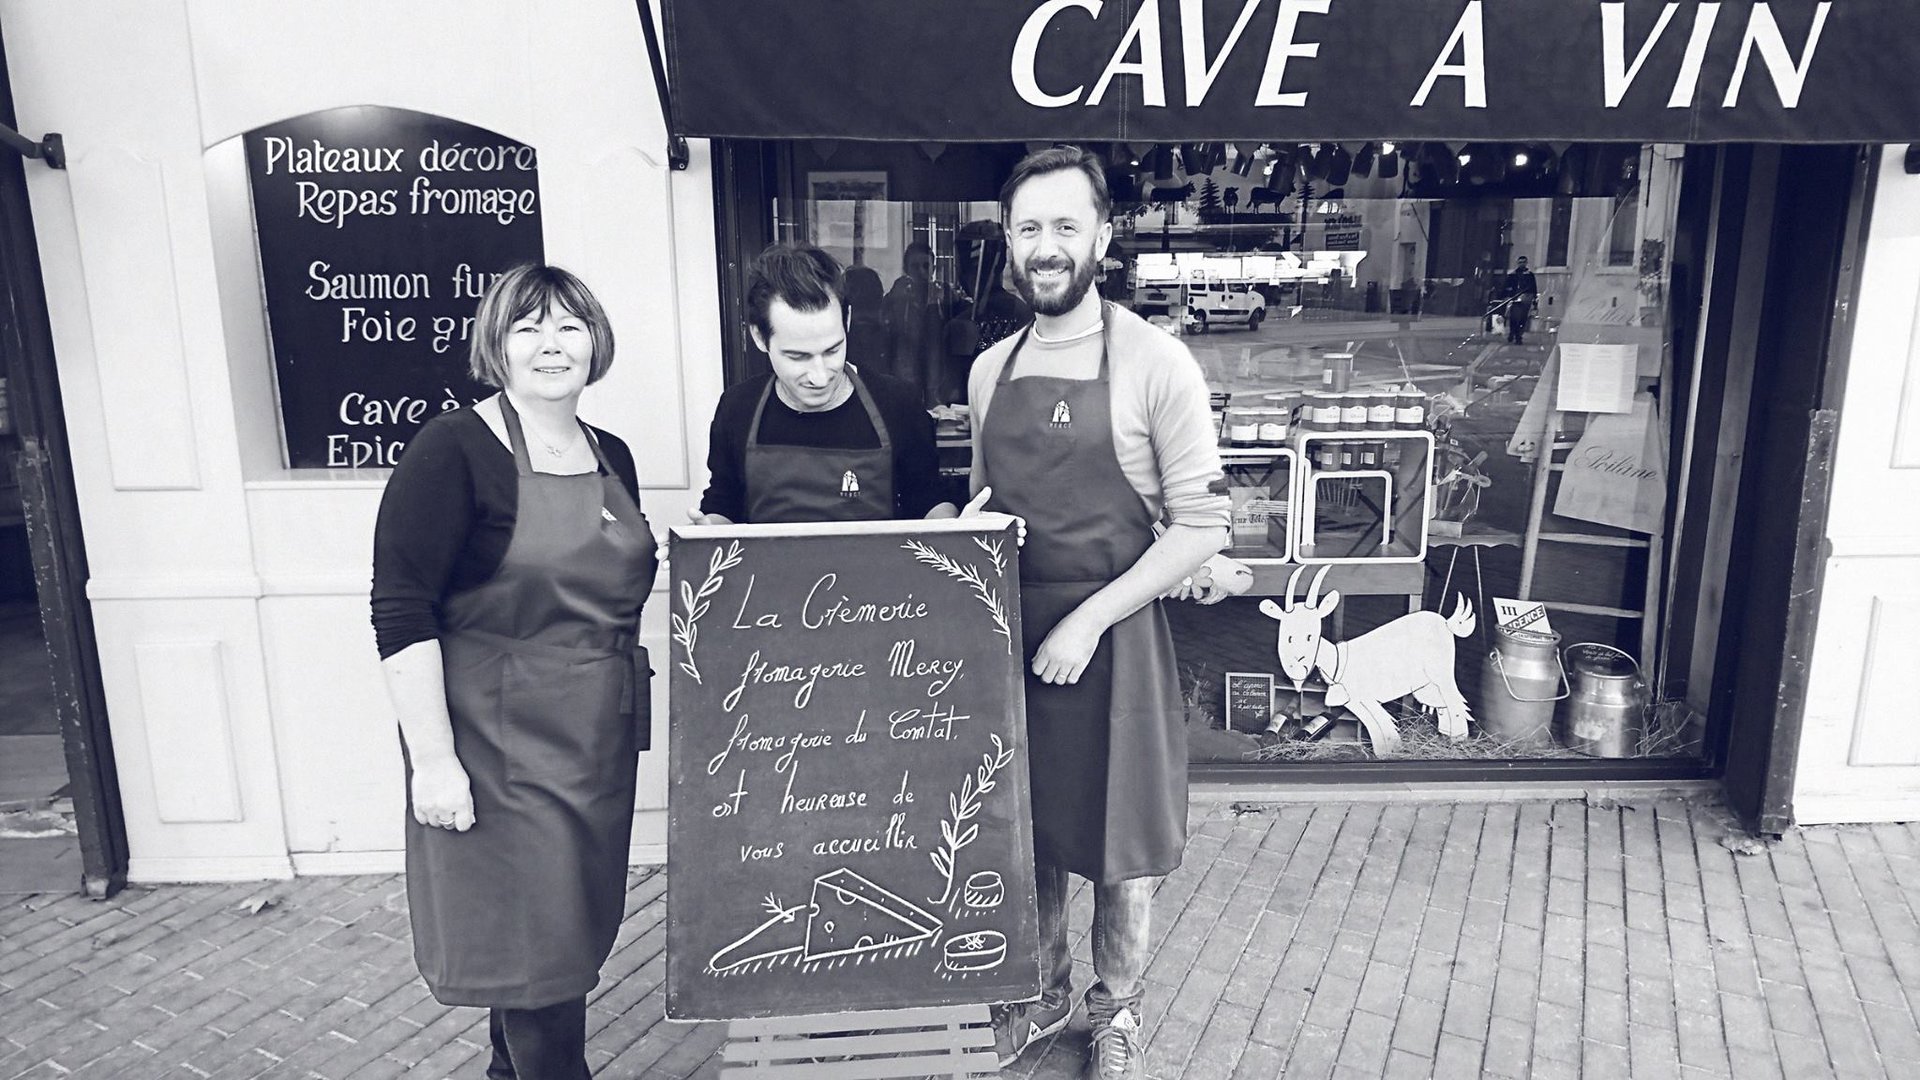 CAVE A VIN
Plateaux décore
Repas fromage
Saumon fu
Foie gr
Cave à
Epic
MERCY
MERCY
La Crèmerie
fromagerie Mercy,
fromagerie du Comtat.
est heureuse de
vous accueillir
Poilâne
III
LICENCE